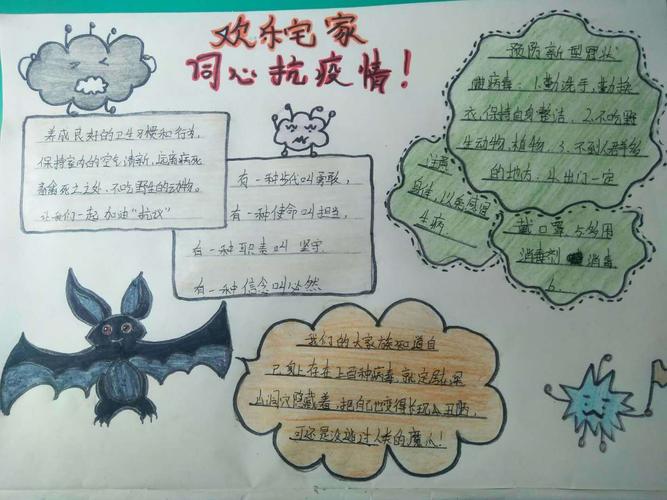 欢乐宅家
同心抗疫情!
养成良好的卫生习惯和行为,
保持室内的空气清新,远离病死
畜禽死之处,不吃野生的动物。
让我们一起加油"抗议"
有一种步伐叫勇敢,
有一种使命叫担当,
有一种职责叫 坚守
有一种信念叫必然
预防新型冠状
病毒:1.勤洗手,勤换
衣,保持自身整洁:2.不吃野
生动物,植物.3.不到人群多
的地方:4.出门一定
戴口罩 5.多用
消毒剂 消毒
6.
注意
身体,以免感冒
生病
我们的大家族知道自
己身上存在上百种病毒.就定居深
山洞穴隐藏着,把自己也变得长现在丑陋,
可还是没逃过人类的魔爪!